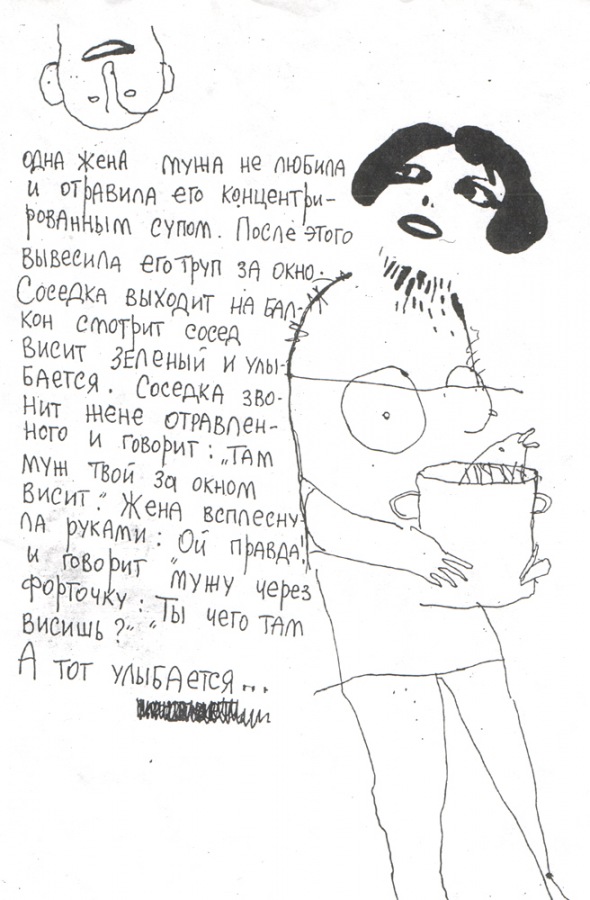 одна жена мужа не любила
и отравила его концентри-
рованным супом. После этого
вывесила его труп за окно.
Соседка выходит на бал-
кон смотрит сосед
висит зеленый и улы-
бается. Соседка зво-
нит жене отравлен-
ного и говорит: „там
муж твой за окном
висит“. Жена всплесну-
ла руками: Ой правда!
и говорит мужу через
форточку: „Ты чего там
висишь?“
А тот улыбается...